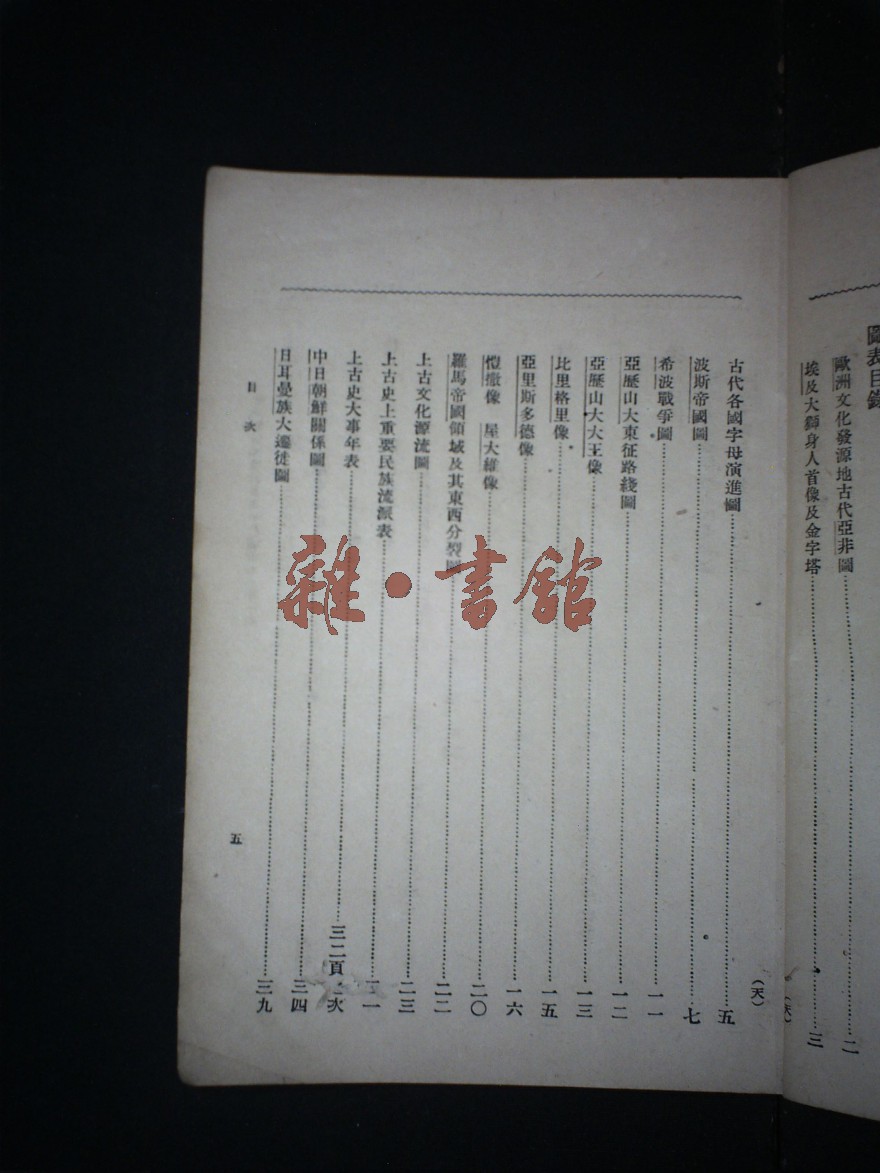 圖表目錄
歐洲文化發源地古代亞非圖……二
埃及大獅身人首像及金字塔……三
(天)
古代各國字母演進圖……五
(天)
波斯帝國圖……七
希波戰爭圖……一一
亞歷山大東征路綫圖……一二
亞歷山大大王像……一三
比里格里像……一五
亞里斯多德像……一六
愷撒像 屋大維像……二〇
羅馬帝國領域及其東西分裂圖……二二
上古文化源流圖……二三
上古史上重要民族流派表……
上古史大事年表……三二頁 次
中日朝鮮關係圖……三四
日耳曼族大遷徙圖……三九
目次
五
雜·書館